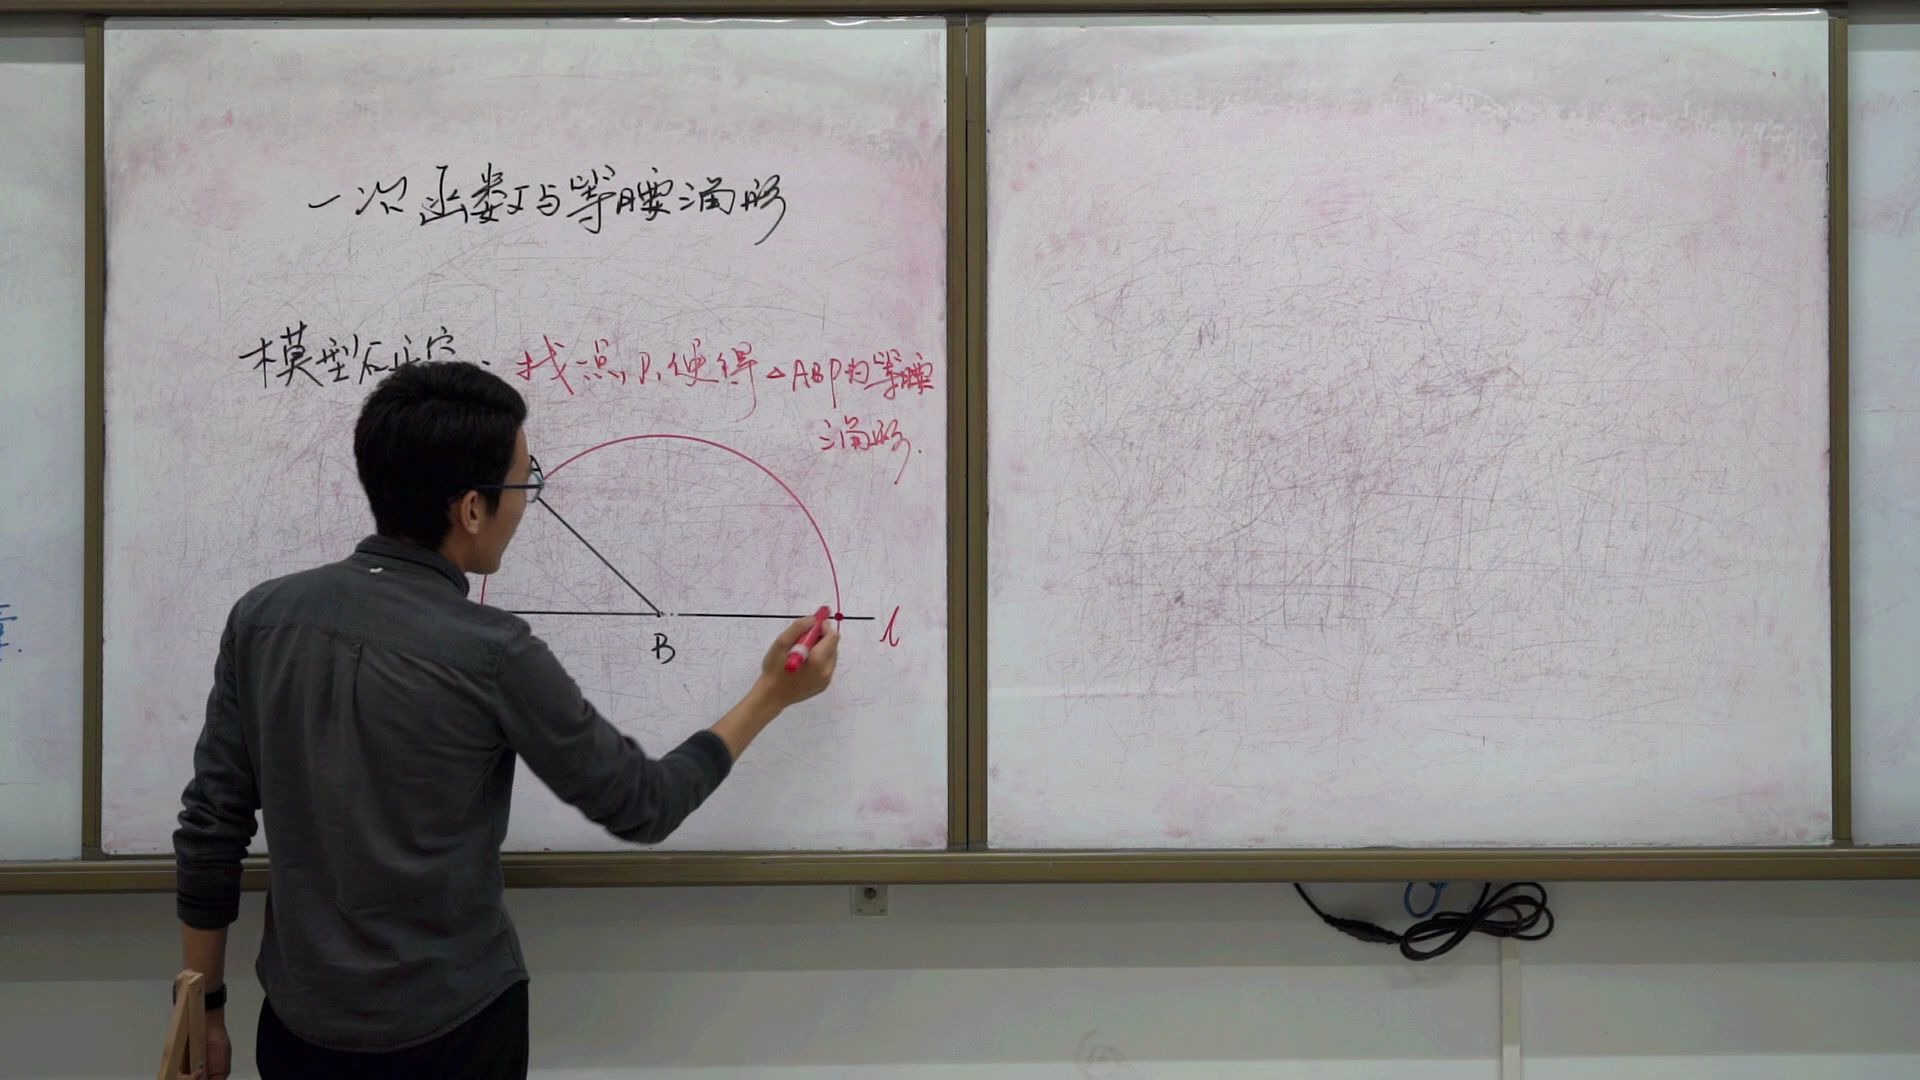 一次函数与等腰三角形
模型研究: 找点P,使得△ABP为等腰
三角形.
A
B
l